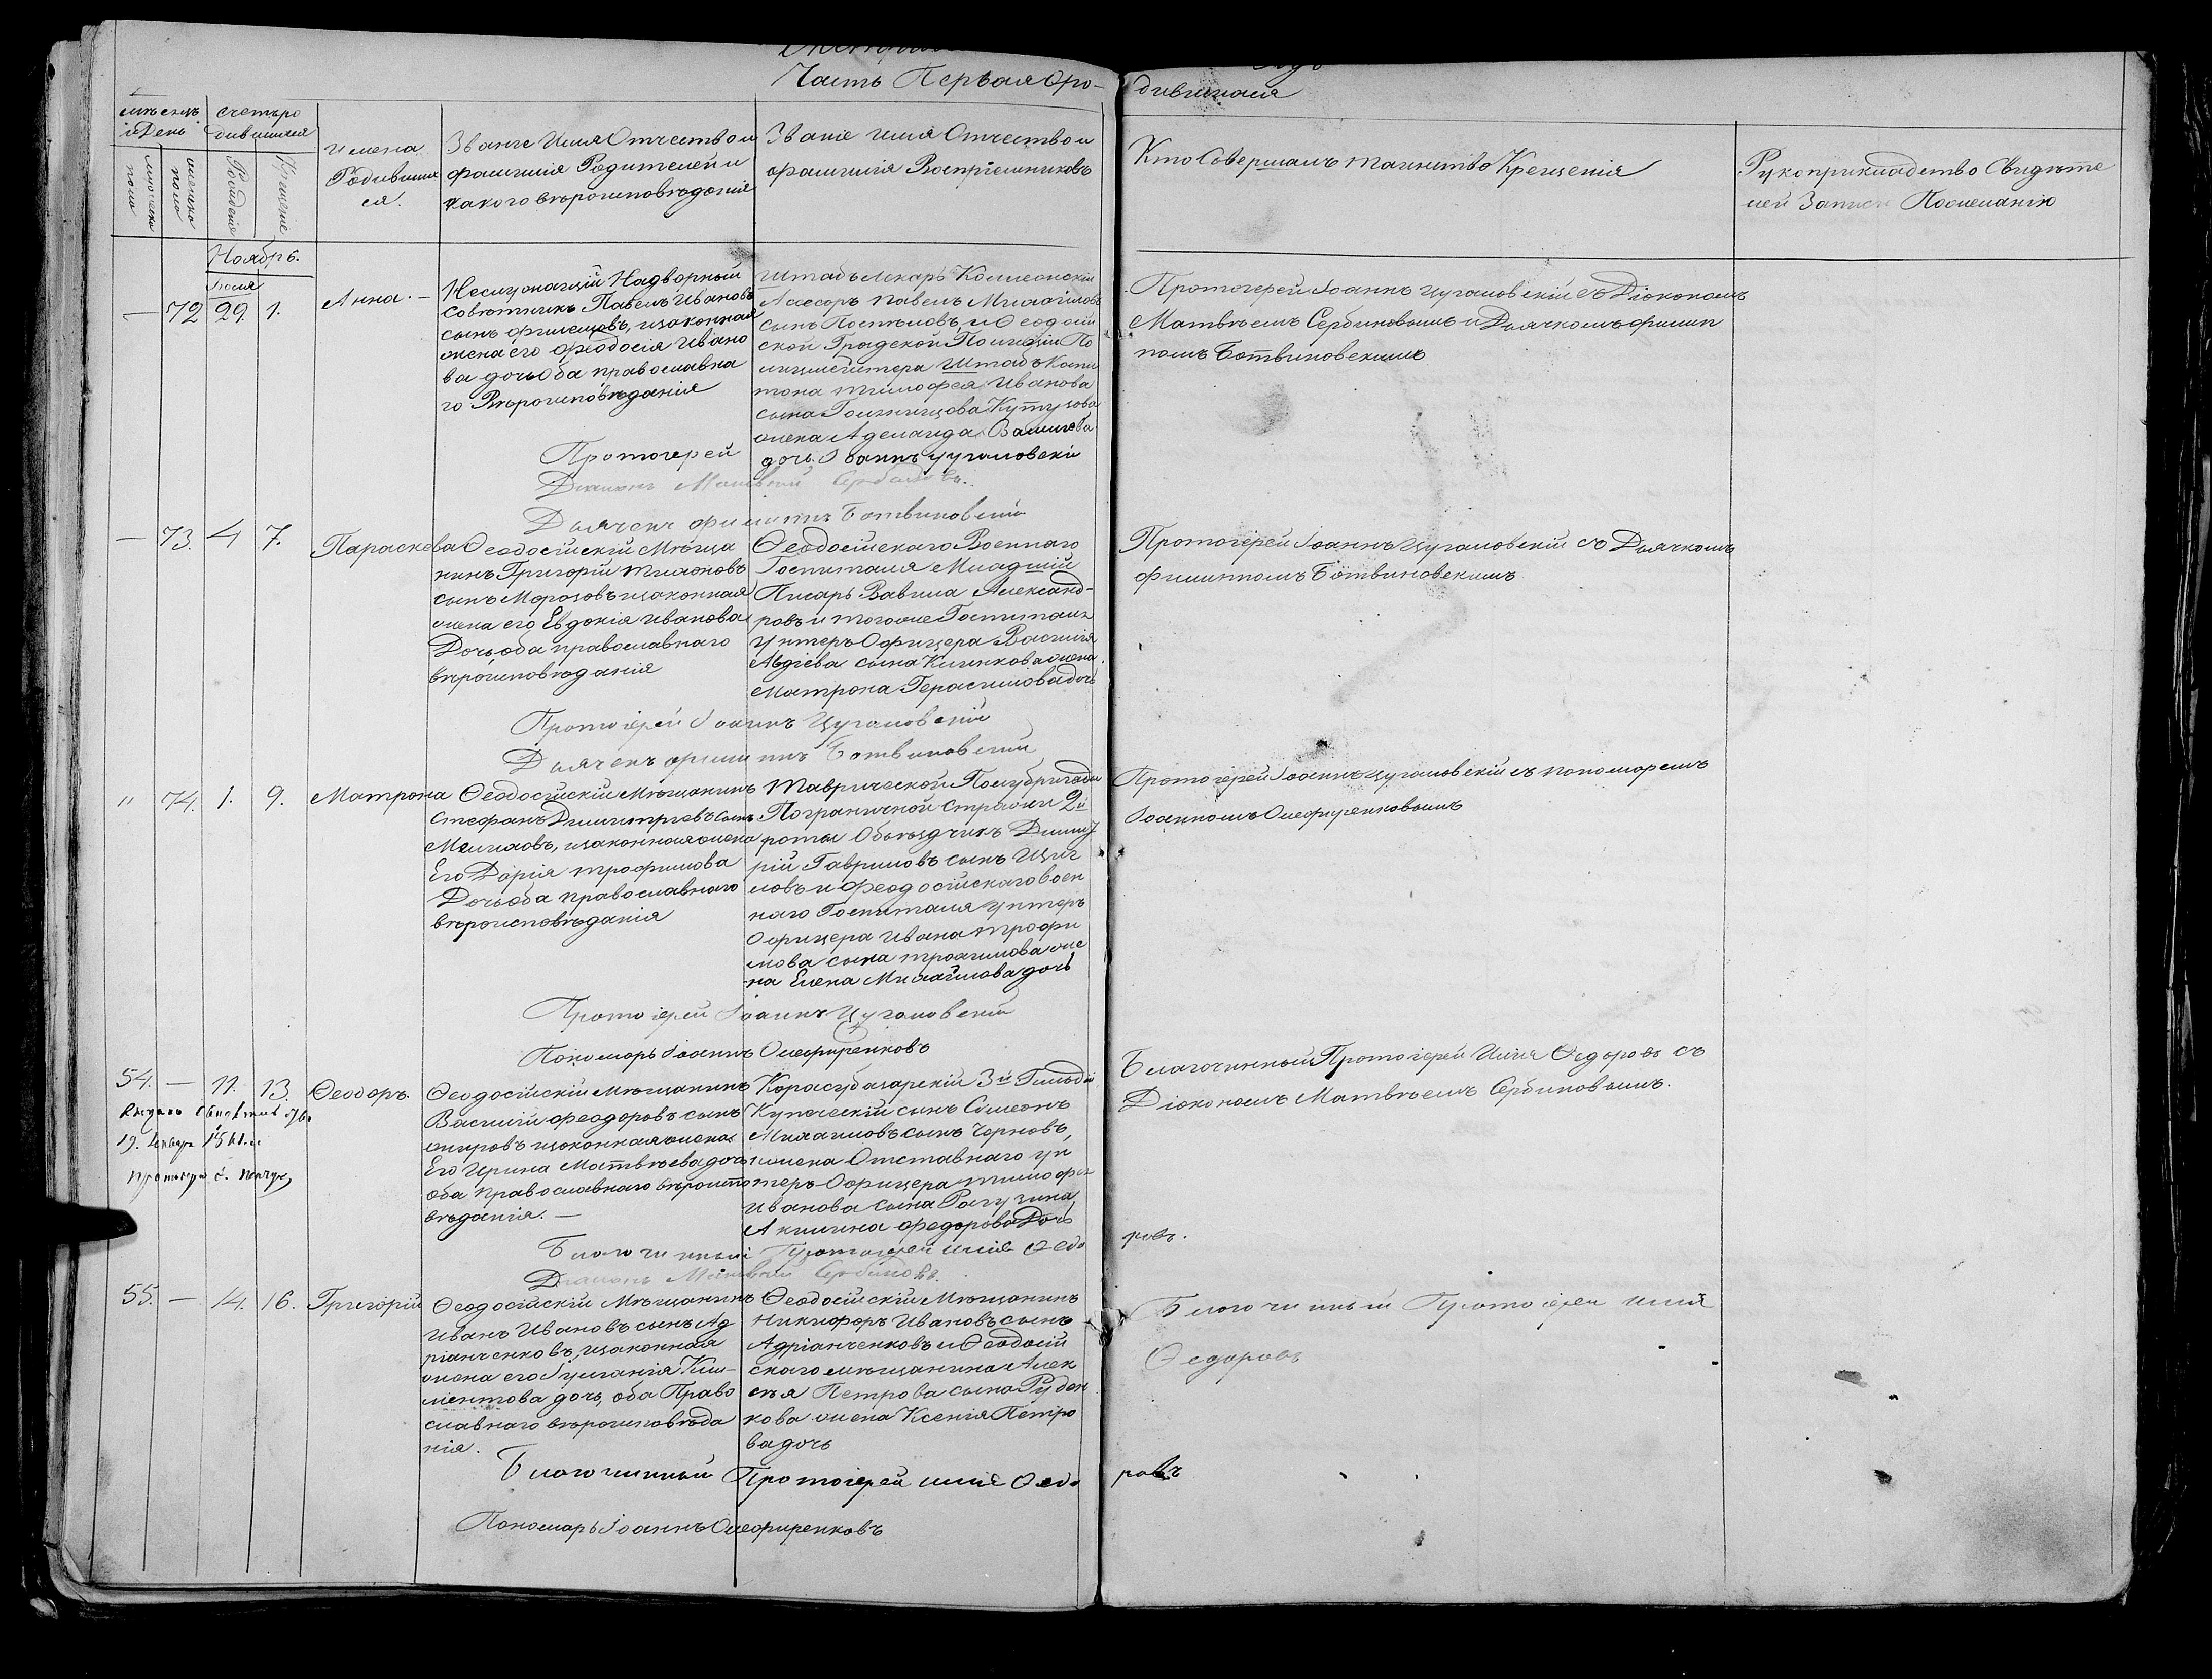 Часть Первая о ро-
дившихся
месецъ
и День
счетъ ро
дившихся
мужеска
пола
женска
пола
Рожденiя
Крещенiя
имена
Родивших
ся.
Званiе Имя Отчество и
фамилiя Родителей и
какого вѣроисповѣданiя
Званiе имя Отчество и
фамилiя Воспрiемниковъ
Кто Совершалъ таинство Крещенiя
Рукоприкладство Свидѣте
лей Записи По желанiю
Ноябрь.
—
72
29.
1.
Анна. —
Надворный
Совѣтникъ Павелъ Ивановъ
сынъ
жена его Феодосiя Ивано
ва дочь Оба православна
го Вѣроисповѣданiя
Штабъ Лекарь Коллежскiй
Асесоръ Павелъ Михайловъ
сынъ и Феодосiй
ской Градской Полицiи По
лицмейстера Штабъ Капи
тана тимофея Иванова
сына Голенищова Кутузова
жена Аделаида
дочь.
Протоiерей Iоаннъ Цугаловскiй съ Дiякономъ
Матвѣемъ Сербиновымъ и Дьячкомъ филип
помъ Ботвиновскимъ
Протоiерей Iоаннъ Цугаловскiй
Дiаконъ Матвей Сербиновъ.
Дьячекъ филиппъ Ботвиновскiй
—
73.
4
7.
Параскева
Феодосiйскiй Мѣща
нинъ Григорiй тихоновъ
сынъ Морозовъ и законная
жена его Евдокiя Иванова
Дочь, оба православнаго
вѣроисповѣданiя
Феодосiйскаго Военнаго
Госпиталя Младшiй
Писарь Вавила Александ-
ровъ и тогоже Госпиталя
Унтеръ Офицера Василiя
Авдiева сына жена
Матрона Герасимова дочь
Протоiерей Iоаннъ Цугаловскiй съ Дьячкомъ
филиппомъ Ботвиновскимъ
Протоiерей Iоаннъ Цугаловскiй
Дьячекъ филиппъ Ботвиновскiй
"
74.
1.
9.
Матрона
Феодосiйскiй Мѣщанинъ
Стефанъ Димитрiевъ сынъ
и законная жена
Его Дарiя трофимова
Дочь оба православнаго
вѣроисповѣданiя
Таврической Полубригады
Пограничной Стражи 2й
роты Объездчикъ Димит
рiй Гавриловъ сынъ
ловъ и Феодосiйскаго воен
наго Госпиталя Унтеръ
Офицера Ивана трофи
мова сына же
на Елена Михайлова дочь
Протоiерей Iоаннъ Цугаловскiй съ пономаремъ
Iоанномъ Олефиренковымъ
Протоiерей Iоаннъ Цугаловскiй
Пономарь Iоаннъ Олефиренковъ
54.
—
11.
13.
19.
Феодоръ.
Феодосiйскiй мѣщанинъ
Василiй Феодоровъ сынъ
и законная жена
Его Ирина Матвѣева дочь
оба православнаго вѣроиспо
вѣданiя. —
Карасубазарскiй 3й Гильдiи
Купеческiй сынъ Симеонъ
Михаиловъ сынъ Чорновъ,
и жена Отставнаго Ун
теръ-Офицера тимофея
Иванова сына
Акилина федорова Дочь
Благочинный Протоiерей Илiя Федоровъ съ
Дiякономъ Матвѣемъ Сербиновымъ.
Благочинный Протоiерей Илiя Федо
ровъ.
Дiаконъ Матвей Сербиновъ.
55.
—
14.
16.
Григорiй
Феодосiйскiй Мѣщанинъ
Иванъ Ивановъ сынъ Ад
рiанченковъ, и законная
жена его Iулианiя Кли-
ментова дочь, оба Право
славнаго вѣроисповѣда
нiя.
Феодосiйскiй Мѣщанинъ
Никифоръ Ивановъ сынъ
Адрiанченковъ и Феодосiй
скаго мѣщанина Алек
сѣя Петрова сына Руден
кова жена Ксенiя Петро
ва дочь
Благочинный Протоiерей Илiя
Федоровъ
Благочинный Протоiерей Илiя Федо
ровъ
Пономарь Iоаннъ Олефиренковъ